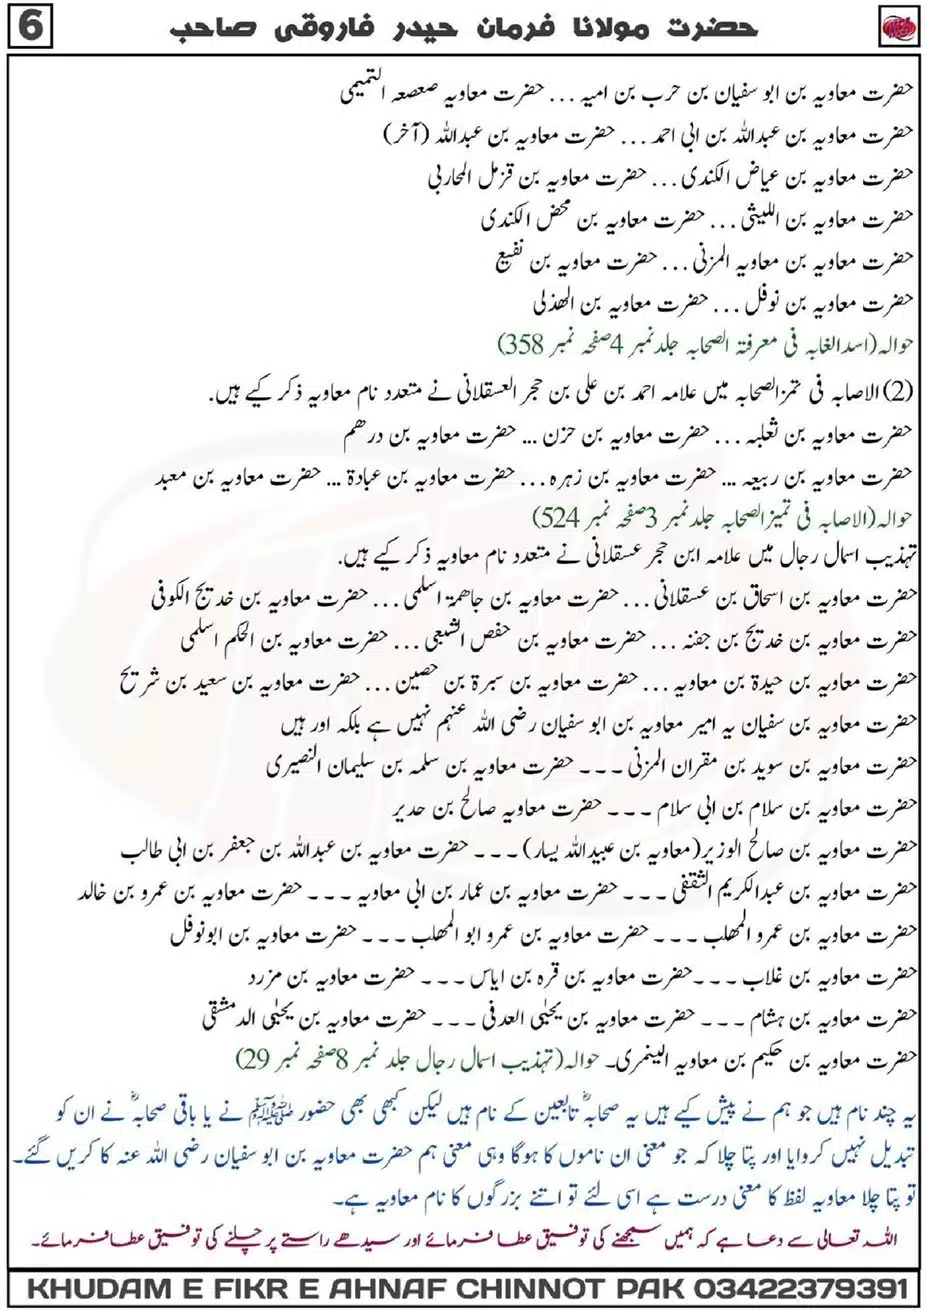 6
حضرت مولانا فرمان حیدر فاروقی صاحب
حضرت معاویہ بن ابو سفیان بن حرب بن امیہ ... حضرت معاویہ صعصعہ التمیمی
حضرت معاویہ بن عبداللہ بن ابی احمد ... حضرت معاویہ بن عبداللہ (آخر)
حضرت معاویہ بن عیاض الکندی ... حضرت معاویہ بن قزمل المحاربی
حضرت معاویہ بن اللیثی ... حضرت معاویہ بن محض الکندی
حضرت معاویہ بن معاویہ المزنی ... حضرت معاویہ بن نفیع
حضرت معاویہ بن نوفل ... حضرت معاویہ بن الھذلی
حوالہ(اسدالغابہ فی معرفتہ الصحابہ جلدنمبر 4صفحہ نمبر 358)
(2) الاصابہ فی تمزالصحابہ میں علامہ احمد بن علی بن حجر العسقلانی نے متعدد نام معاویہ ذکر کیے ہیں.
حضرت معاویہ بن ثعلبہ ... حضرت معاویہ بن حزن ... حضرت معاویہ بن درھم
حضرت معاویہ بن ربیعہ ... حضرت معاویہ بن زہرہ ... حضرت معاویہ بن عبادة ... حضرت معاویہ بن معبد
حوالہ(الاصابہ فی تمیزالصحابہ جلدنمبر 3صفحہ نمبر 524)
تہذیب اسمال رجال میں علامہ ابن حجر عسقلانی نے متعدد نام معاویہ ذکر کیے ہیں.
حضرت معاویہ بن اسحاق بن عسقلانی ... حضرت معاویہ بن جاھمۃ اسلمی ... حضرت معاویہ بن خدیج الکوفی
حضرت معاویہ بن خدیج بن جفنہ ... حضرت معاویہ بن حفص الشعبی ... حضرت معاویہ بن الحکم اسلمی
حضرت معاویہ بن حیدة بن معاویہ ... حضرت معاویہ بن سبرة بن حصین ... حضرت معاویہ بن سعید بن شریح
حضرت معاویہ بن سفیان یہ امیر معاویہ بن ابو سفیان رضی اللہ عنہم نہیں ہے بلکہ اور ہیں
حضرت معاویہ بن سوید بن مقران المزنی ۔۔۔ حضرت معاویہ بن سلمہ بن سلیمان النصیری
حضرت معاویہ بن سلام بن ابی سلام ۔۔۔ حضرت معاویہ صالح بن حدیر
حضرت معاویہ بن صالح الوزیر(معاویہ بن عبیداللہ یسار) ۔۔۔ حضرت معاویہ بن عبداللہ بن جعفر بن ابی طالب
حضرت معاویہ بن عبدالکریم الثقفی ۔۔۔ حضرت معاویہ بن عمار بن ابی معاویہ ۔۔۔ حضرت معاویہ بن عمرو بن خالد
حضرت معاویہ بن عمرو المھلب ۔۔۔ حضرت معاویہ بن عمرو ابو المھلب ۔۔۔ حضرت معاویہ بن ابونوفل
حضرت معاویہ بن غلاب ۔۔۔ حضرت معاویہ بن قرہ بن ایاس ۔۔۔ حضرت معاویہ بن مزرد
حضرت معاویہ بن ہشام ۔۔۔ حضرت معاویہ بن یحیٰی العدفی ۔۔۔ حضرت معاویہ بن یحیٰی الدمشقی
حضرت معاویہ بن حکیم بن معاویہ الینمری۔ حوالہ(تہذیب اسمال رجال جلد نمبر 8صفحہ نمبر 29)
یہ چند نام ہیں جو ہم نے پیش کیے ہیں یہ صحابہؓ تابعین کے نام ہیں لیکن کبھی بھی حضور ﷺ نے یا باقی صحابہؓ نے ان کو
تبدیل نہیں کروایا اور پتا چلا کہ جو معنی ان ناموں کا ہوگا وہی معنی ہم حضرت معاویہ بن ابو سفیان رضی اللہ عنہ کا کریں گئے۔
تو پتا چلا معاویہ لفظ کا معنی درست ہے اسی لئے تو اتنے بزرگوں کا نام معاویہ ہے۔
اللہ تعالی سے دعا ہے کہ ہمیں سمجھنے کی توفیق عطا فرمائے اور سیدھے راستے پر چلنے کی توفیق عطا فرمائے۔
KHUDAM E FIKR E AHNAF CHINNOT PAK 03422379391